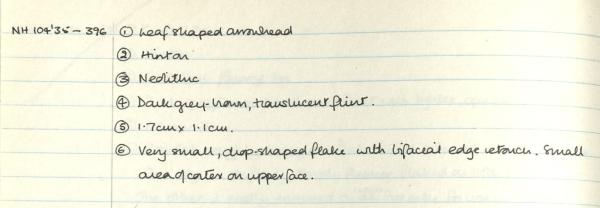 NH 104'35 - 396 ① Leaf shaped arrowhead
② Hinton
③ Neolithic
④ Dark grey-brown, translucent flint.
⑤ 1.7cm x 1.1cm.
⑥ Very small, drop-shaped flake with bifacial edge retouch. Small
area of cortex on upper face.